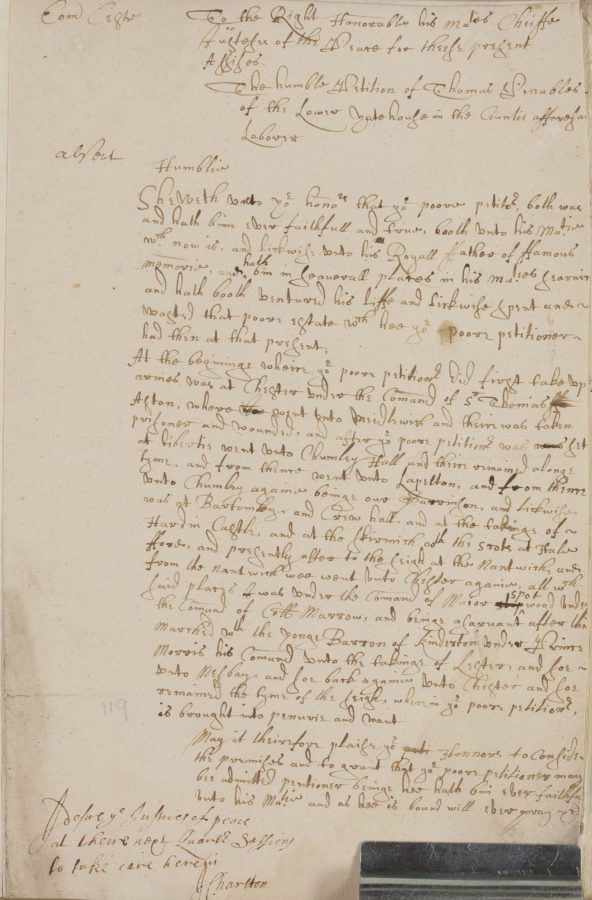 Com Cestr
To the Right Honorable his maties Cheiffe
Justishe of the Peace for theise present
Assises
The humble Petition of Thomas Venables
of the Lower yatehouse in the Countie afforesa
Laborer
Humblie
Sheweth unto yor honors that yor poore petitor, both was
and hath binn ever faithfull and true, booth unto his Matie
wch now is, and lickwise unto his Royall ffather of ffamous
memorie, and hath bin in seaverall places in his maties searvic
and hath booth ventured his liffe and lickwise spent and
wasted that poore estate wch hee yor poore petitioner
had then at that present,
At the begininge wheire yor poore petitionr did first take up
armes was at Chester under the Comand of Sr Thomas
Aston, where went unto Midlewich and theire was taken
prisoner and wounded, and after yor poore petitionr was set
at libertie went unto Chumley Hall and theire remained alonge
tyme, and from thence went unto Lapelton, and from thence
unto Chumley againe beinge our Garrinson, and lickwise
was at Bartomley, and Crew hall, and at the takinge of
Hardin Castle, and at the skirmich wth the Scots at Hale
fforde, and presently after to the seigh at the Nantwich, and
from the Nantwich wee went unto Chester againe, all wch
said places I was under the Comand of Major spotwood under
the Comand of Coll Marrow, and beinge a sarvant after this
marched wth the yonge Barron of Kinderton under Prince
Morris his Comand unto the takinge of Lester, and soe
unto Nesbay, and soe back againe unto Chester and soe
remained the tyme of the seigh, wherein yor poore petitionr,
is brought into penurie and want
May it theirefore plaise yor Honnors to Consider
the premises and to grant that yor poore petitioner may
bee admitted pentioner beinge hee hath bin ever faithfu
unto his Matie and as hee is bound will ever pray &c
I desire ye Justices of peace
at theire next Quarter Sessions
to take care herein
J Charlton
119